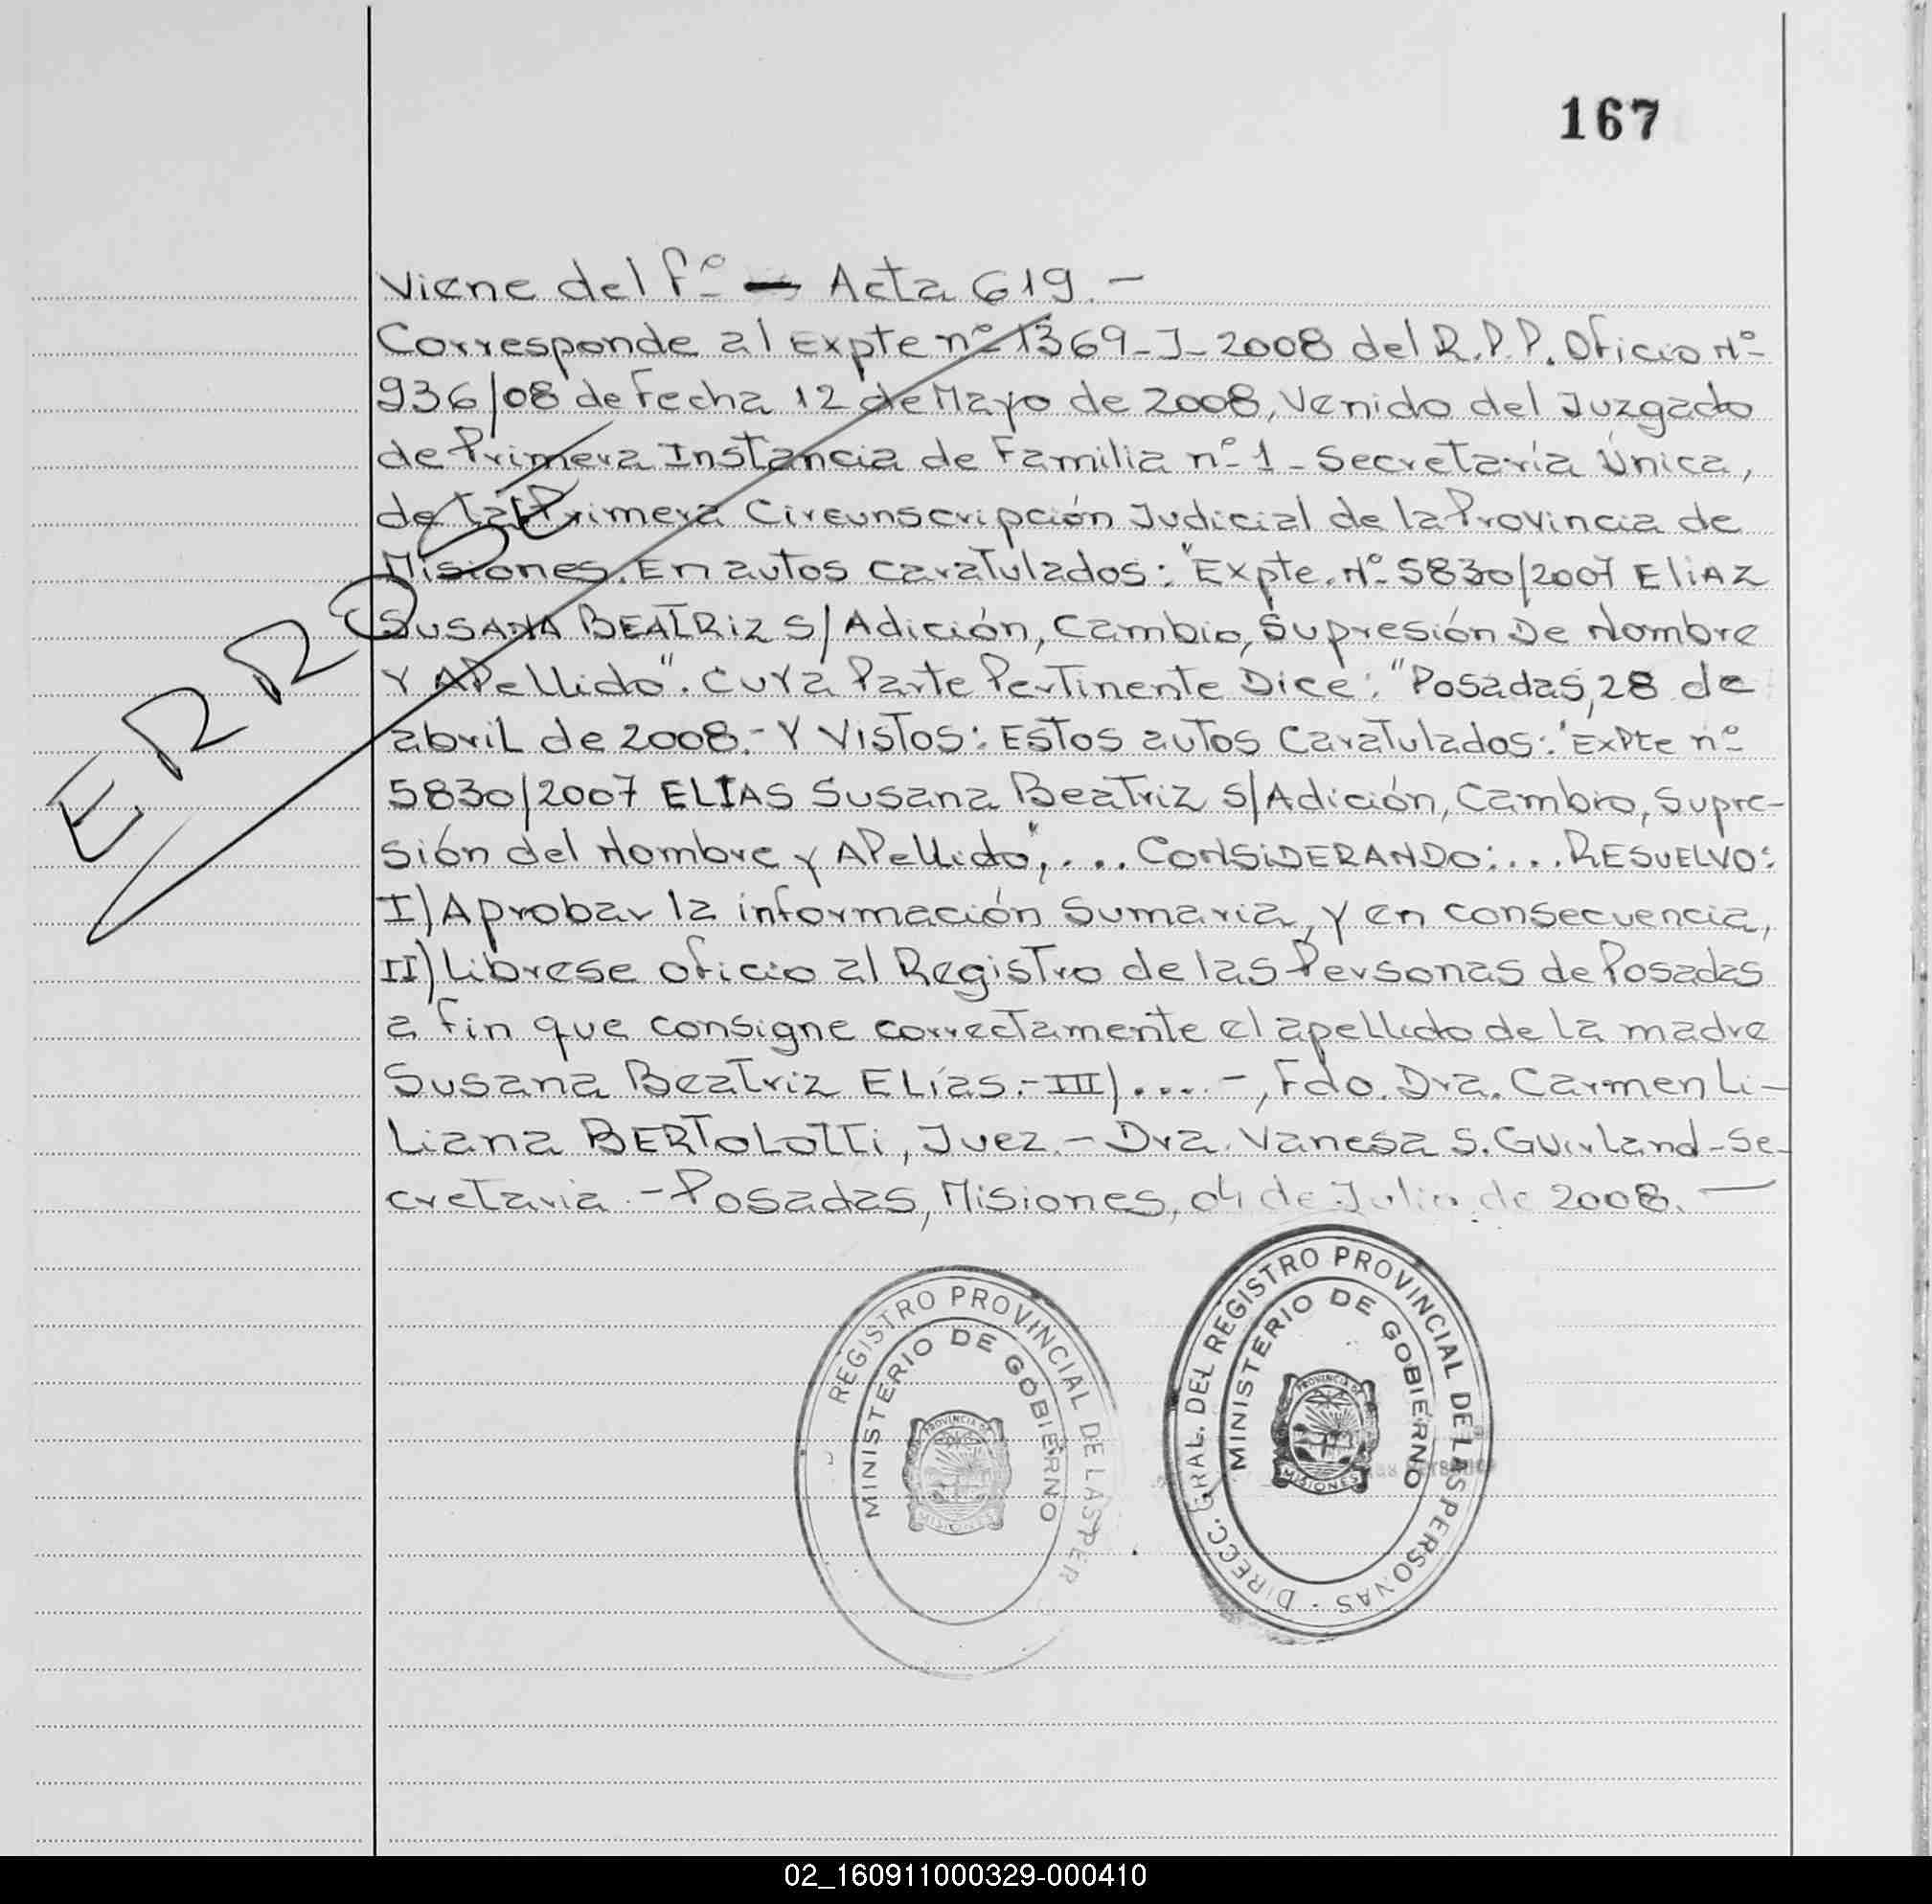 167
Viene del fº — Acta 619.-
Corresponde al Expte nº 1369-J-2008 del R.P.P. Oficio Nº
936/08 de fecha 12 de Mayo de 2008, venido del Juzgado
de Primera Instancia de Familia nº 1 - Secretaría Única,
de la Primera Circunscripción Judicial de la Provincia de
Misiones. En autos caratulados: "Expte. Nº 5830/2007 ELIAZ
SUSANA BEATRIZ S/ Adición, Cambio, Supresión De Nombre
Y APellido". Cuya Parte Pertinente Dice: "Posadas, 28 de
abril de 2008.- Y Vistos: Estos autos Caratulados: "Expte nº
5830/2007 ELIAS Susana Beatriz S/ Adición, Cambio, Supre-
sión del Nombre y APellido", .... CONSIDERANDO: ... RESUELVO:
I) Aprobar la información Sumaria, y en consecuencia,
II) Librese oficio al Registro de las Personas de Posadas
a fin que consigne correctamente el apellido de la madre
Susana Beatriz Elías.- III) .... -, Fdo. Dra. Carmen Li-
liana BERTOLOTTI, Juez.- Dra. Vanesa S. Guirland - Se-
cretaria.- Posadas, Misiones, 04 de Julio de 2008.-
ERRO
REGISTRO PROVINCIAL DE LAS PER
MINISTERIO DE GOBIERNO
PROVINCIA DE
MISIONES
DIRECC. GRAL. DEL REGISTRO PROVINCIAL DE LAS PERSONAS
MINISTERIO DE GOBIERNO
PROVINCIA DE
MISIONES
02_160911000329-000410